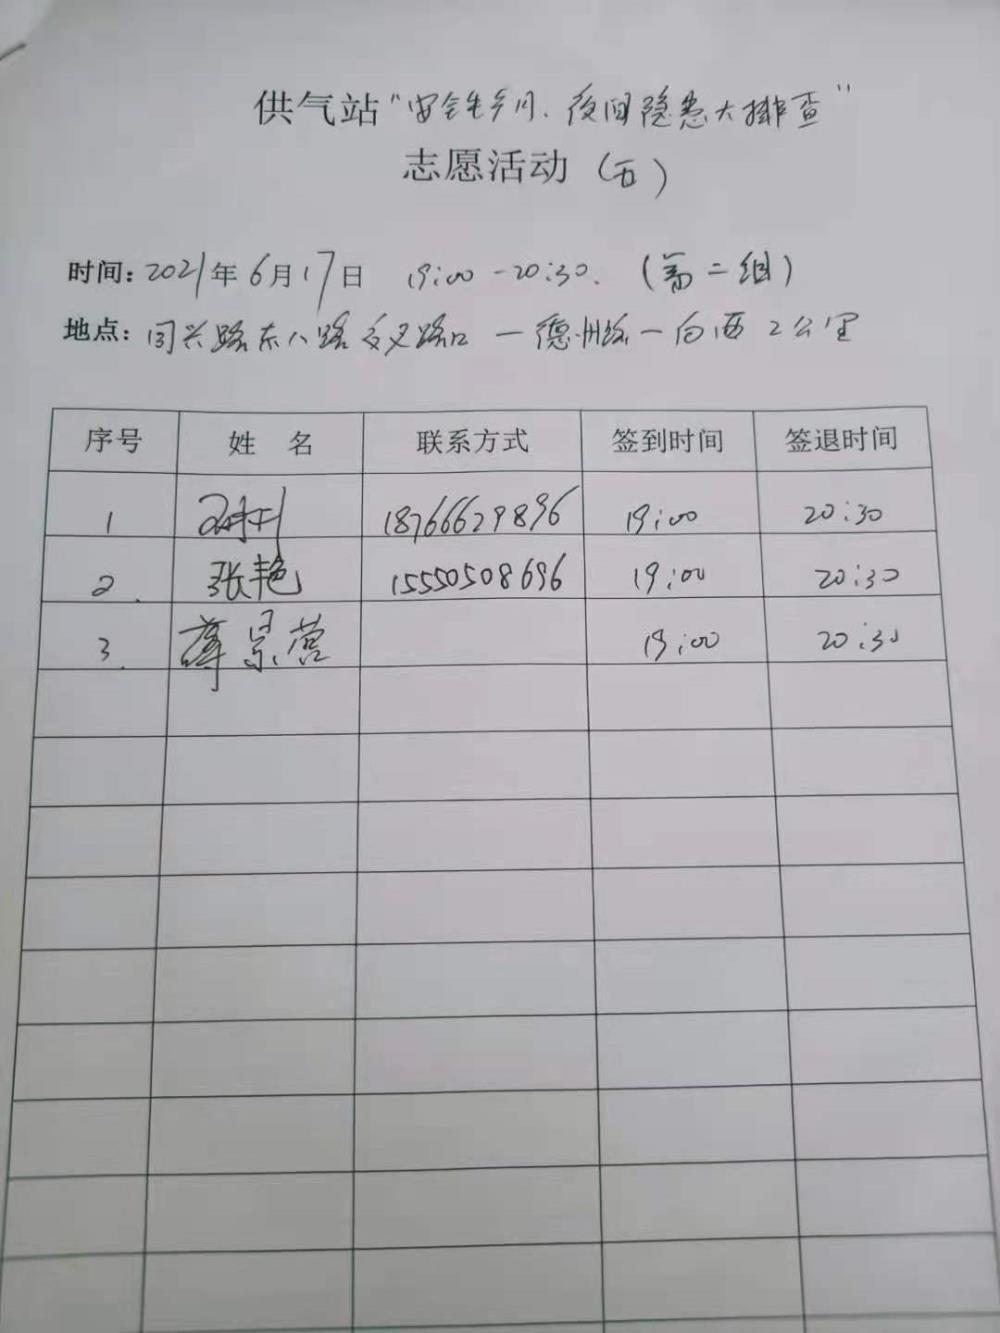 供气站“安全生产月、夜间隐患大排查”
志愿活动（五）
时间：2021年6月17日 19:00-20:30.（第二组）
地点：同兴路东八路交叉路口—德州路—向西2公里
序号 姓名 联系方式 签到时间 签退时间
1 18766629896 19:00 20:30
2. 张艳 15550508696 19:00 20:30
3. 薛景营 19:00 20:30